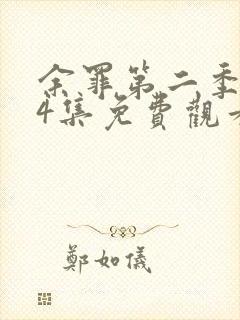 余罪第二季
4集免費觀看
鄭如儀